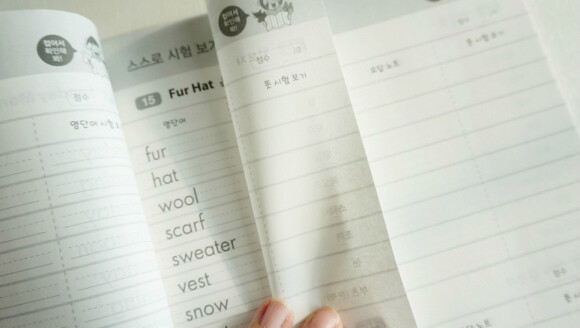 접어서
확인해
봐!
점수
영단어 시험 보기
스스로 시험 보기
15 Fur Hat
영단어
fur
hat
wool
scarf
sweater
vest
snow
접어서
확인해
봐!
점수
뜻 시험 보기
점수
오답 노트
뜻 시험 보기